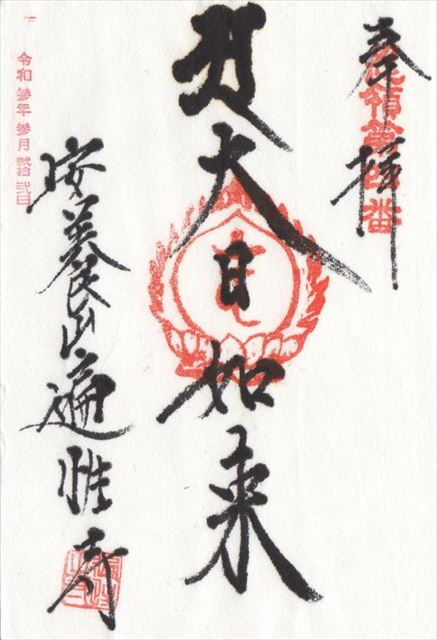 奉拝
番
大日如来
安養山遍性寺
令和参年参月弐拾弐日